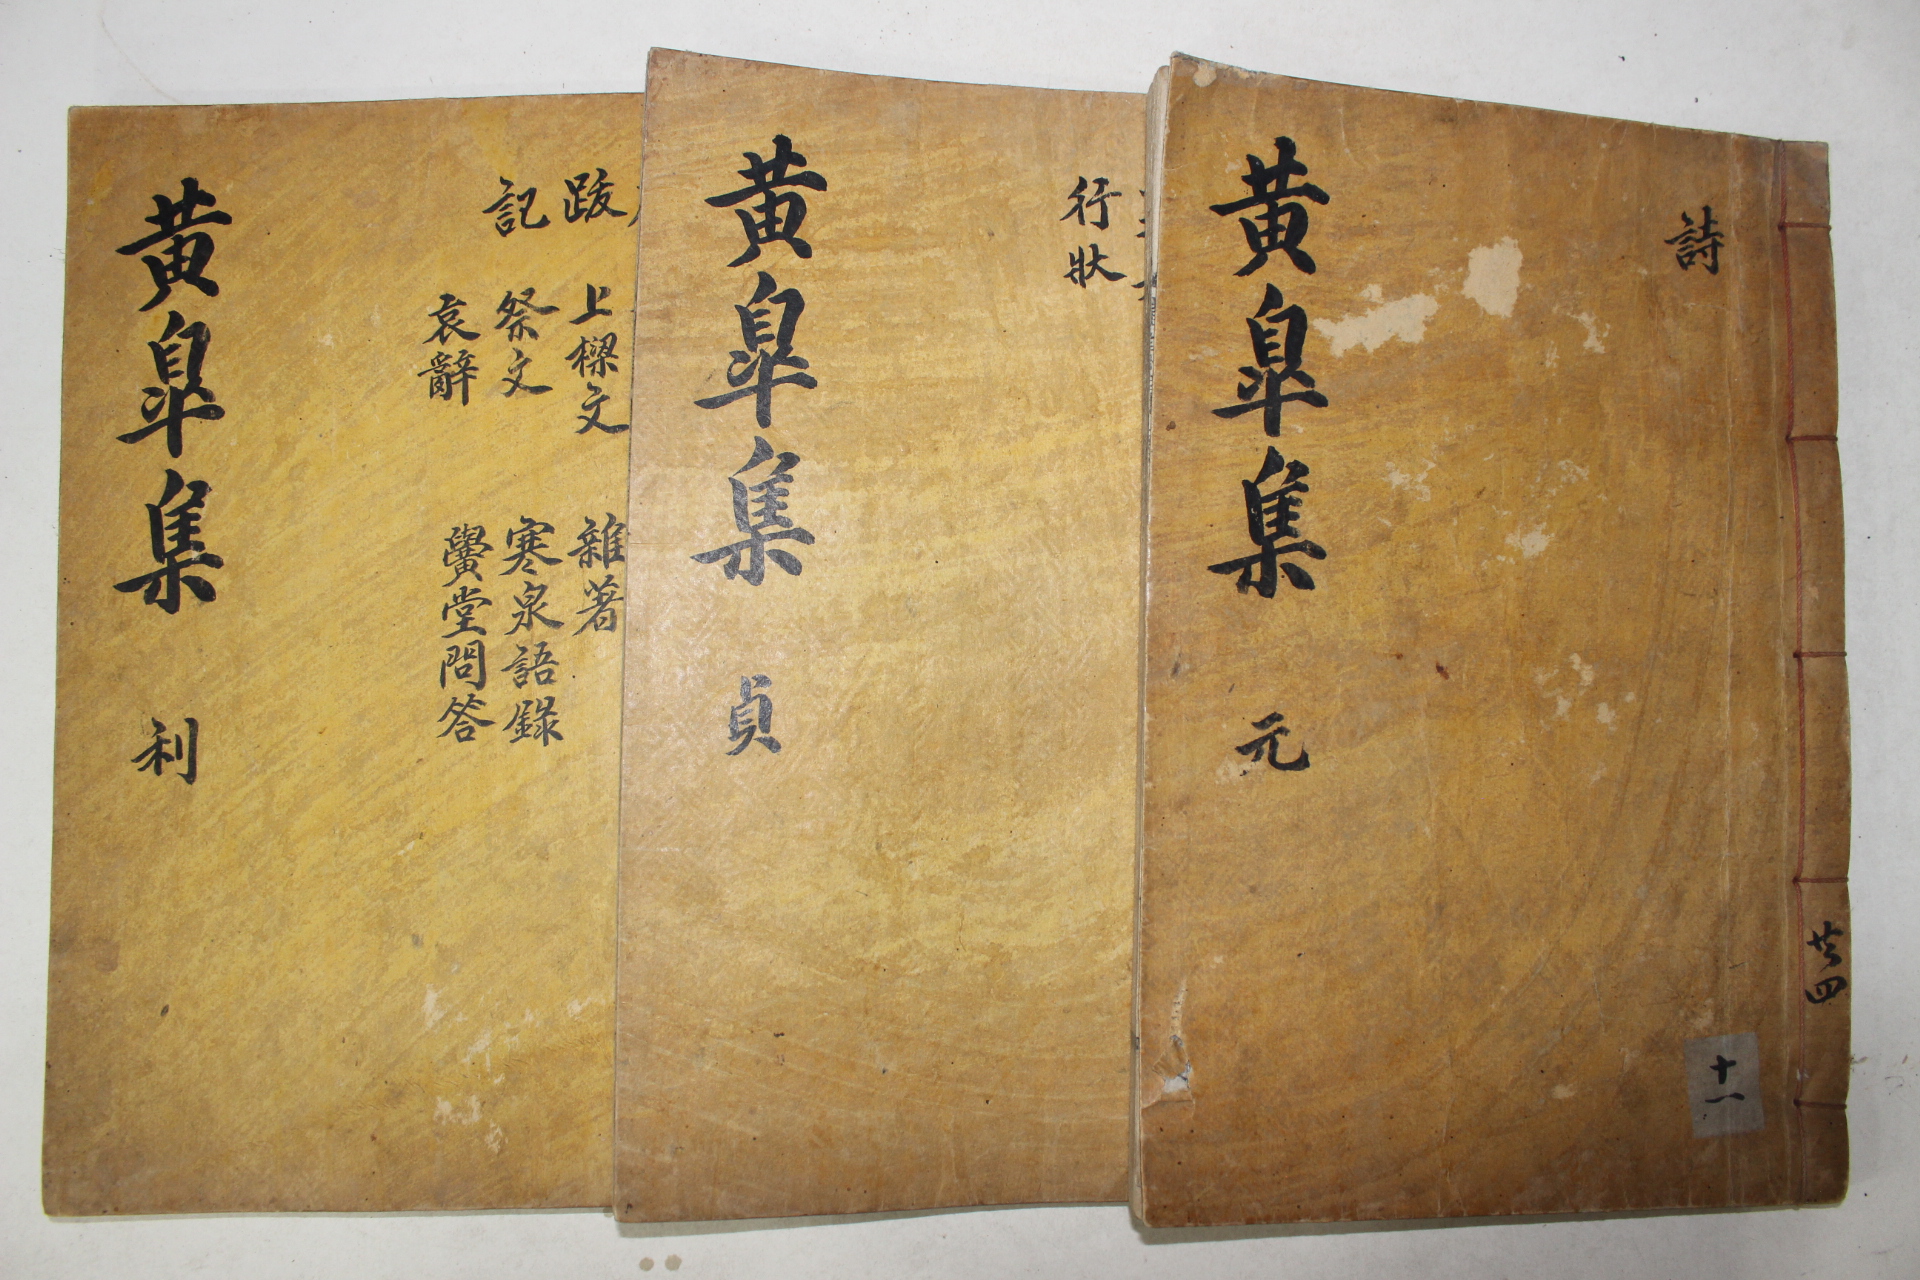 詩
黄皐集 元
廿四
十一
行狀
黄皐集 貞
跋 上樑文 雜著
記 祭文 寒泉語錄
哀辭 黌堂問答
黄皐集 利